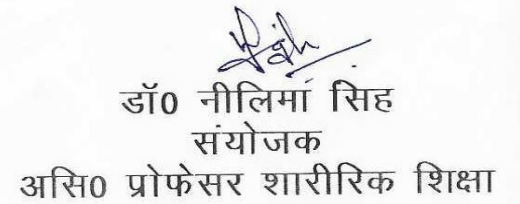 डॉ0 नीलिमा सिंह
संयोजक
असि0 प्रोफेसर शारीरिक शिक्षा